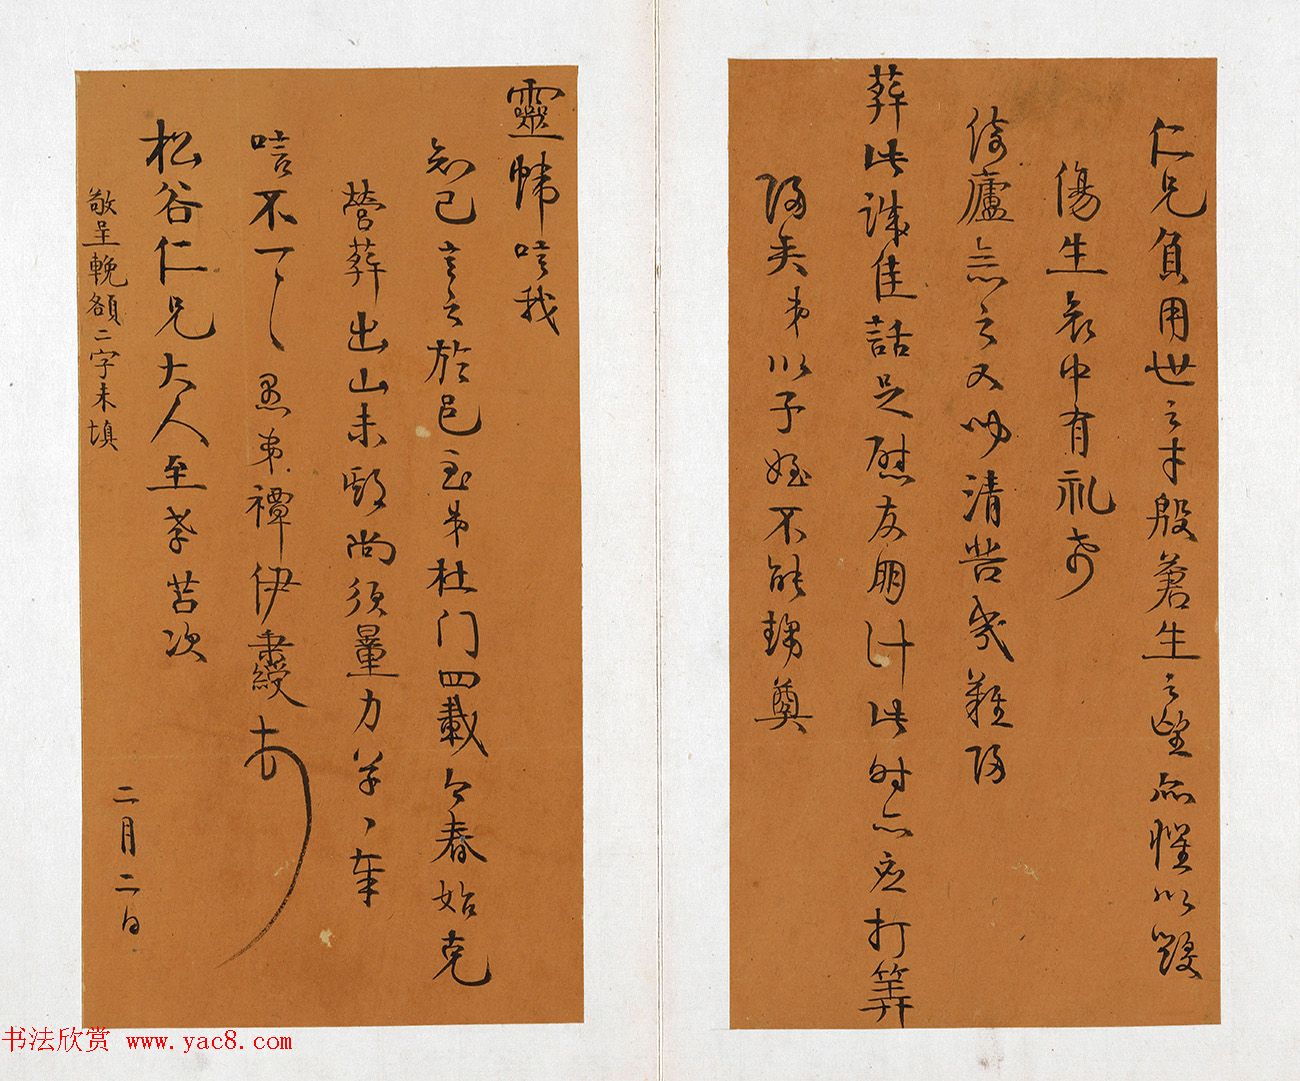 仁兄負用世之才殷蒼生之望無惟以毀
傷生哀中有礼幸
倚廬念之又聞清苦或難歸
葬此誠佳話足慰友朋計此時亦應打算
歸矣弟以子姪不能躬奠
靈幃唁我
知己言之於邑至弟杜门四載今春始克
營葬出山未敢尚須量力草、奉
唁不一一愚弟禫伊秉綬頓
松谷仁兄大人至孝苫次
敬呈輓額二字未填
二月二日
书法欣赏 www.yac8.com